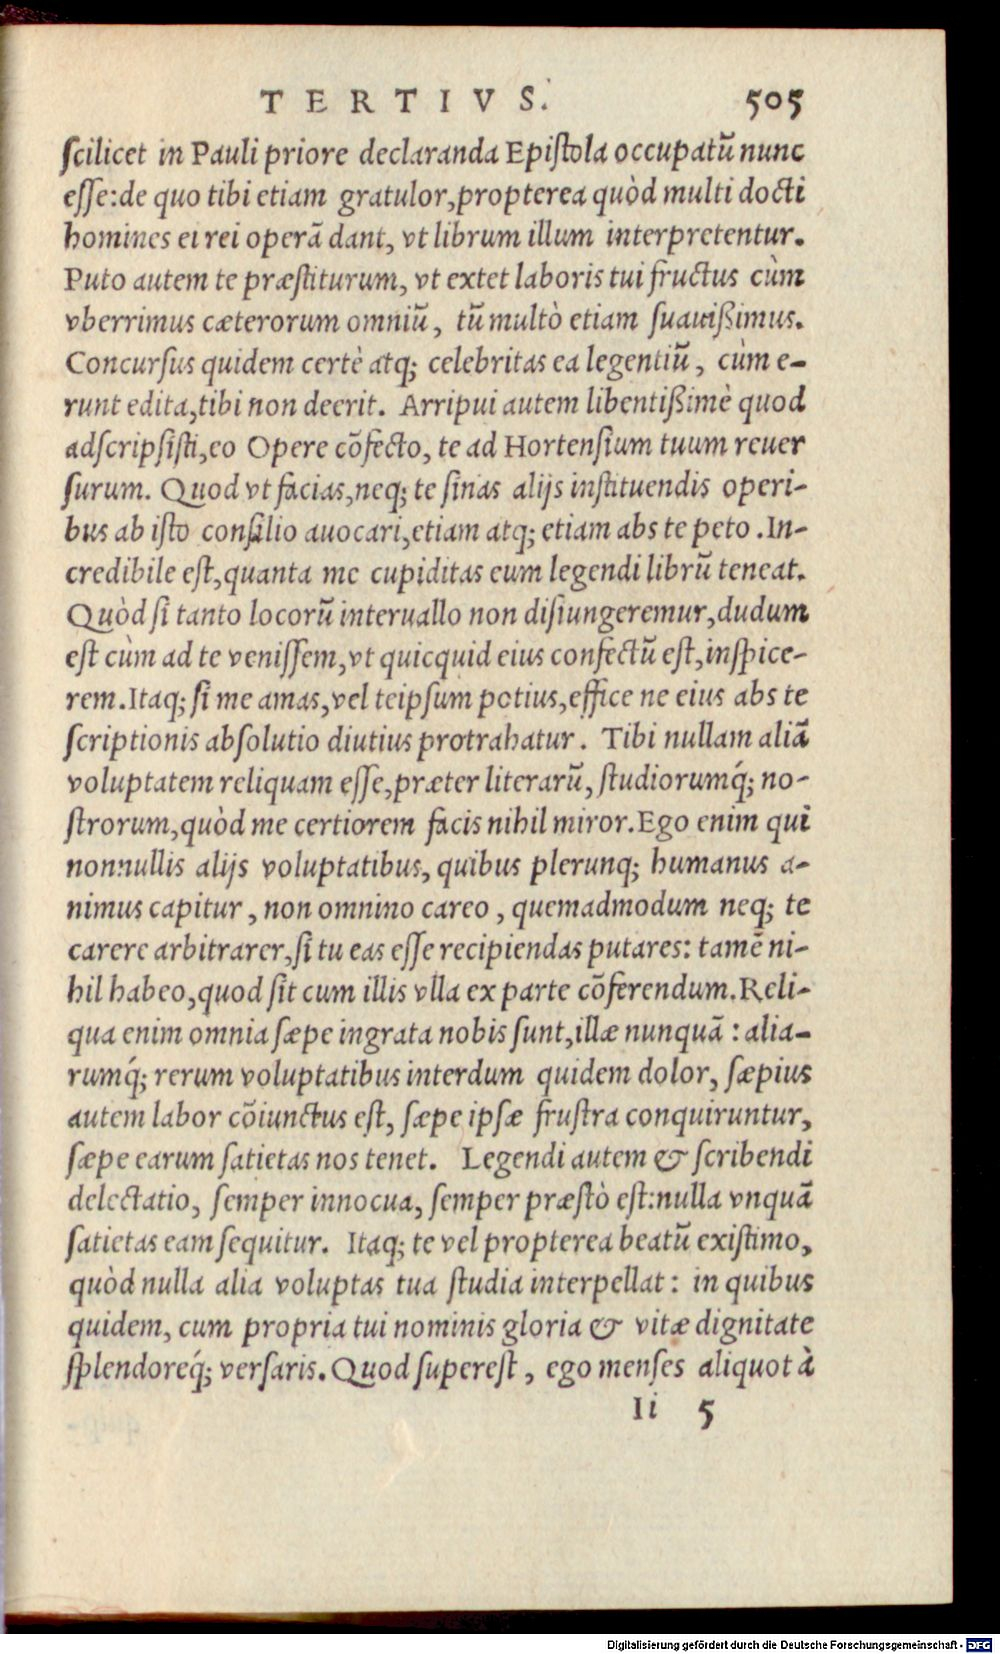 TERTIVS. 505
ſcilicet in Pauli priore declaranda Epiſtola occupatũ nunc
eſſe:de quo tibi etiam gratulor,propterea quòd multi docti
homines ei rei operã dant, vt librum illum interpretentur.
Puto autem te præſtiturum, vt extet laboris tui fructus cùm
vberrimus cæterorum omniũ, tũ multò etiam ſuauißimus.
Concurſus quidem certè atq; celebritas ea legentiũ, cùm e-
runt edita,tibi non deerit. Arripui autem libentißimè quod
adſcripſiſti,eo Opere cõfecto, te ad Hortenſium tuum reuer
ſurum. Quod vt facias,neq; te ſinas alijs inſtituendis operi-
bus ab iſto conſilio auocari,etiam atq; etiam abs te peto. In-
credibile eſt,quanta me cupiditas eum legendi librũ teneat.
Quòd ſi tanto locorũ interuallo non diſiungeremur,dudum
eſt cùm ad te veniſſem,vt quicquid eius confectũ eſt,inſpice-
rem.Itaq; ſi me amas,vel teipſum potius,effice ne eius abs te
ſcriptionis abſolutio diutius protrahatur. Tibi nullam aliã
voluptatem reliquam eſſe,præter literarũ, ſtudiorumq́; no-
ſtrorum,quòd me certiorem facis nihil miror.Ego enim qui
nonnullis alijs voluptatibus, quibus plerunq; humanus a-
nimus capitur, non omnino careo, quemadmodum neq; te
carere arbitrarer,ſi tu eas eſſe recipiendas putares: tamẽ ni-
hil habeo,quod ſit cum illis vlla ex parte cõferendum.Reli-
qua enim omnia ſæpe ingrata nobis ſunt,illæ nunquã: alia-
rumq́; rerum voluptatibus interdum quidem dolor, ſæpius
autem labor cõiunctus eſt, ſæpe ipſæ fruſtra conquiruntur,
ſæpe earum ſatietas nos tenet. Legendi autem & ſcribendi
delectatio, ſemper innocua, ſemper præſtò eſt:nulla vnquã
ſatietas eam ſequitur. Itaq; te vel propterea beatũ exiſtimo,
quòd nulla alia voluptas tua ſtudia interpellat: in quibus
quidem, cum propria tui nominis gloria & vitæ dignitate
ſplendoreq́; verſaris. Quod ſupereſt, ego menſes aliquot à
Ii 5
Digitalisierung gefördert durch die Deutsche Forschungsgemeinschaft - DFG